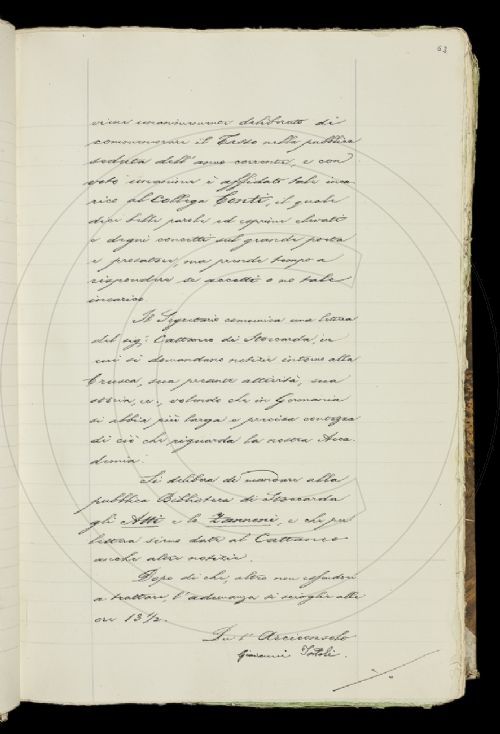 63
viene unanimemente deliberato di
commemorare il Tasso nella pubblica
seduta dell'anno corrente, e con
voto unanime è affidato tale inca-
rico al Collega Conti, il quale
dice belle parole ed esprime elevati
e degni concetti sul grande poeta
e prosatore, ma prende tempo a
rispondere se accetti o no tale
incarico.
Il Segretario comunica una lettera
del sig. Cattaneo di Stoccarda, in
cui si domandano notizie intorno alla
Crusca, sua presente attività, sua
storia, ec., volendo che in Germania
si abbia più larga e precisa contezza
di ciò che riguarda la nostra Acca-
demia.
Si delibera di mandare alla
pubblica Biblioteca di Stoccarda
gli Atti e lo Zannoni, e che per
lettera sieno date al Cattaneo
anche altre notizie.
Dopo di che, altro non essendovi
a trattare, l'adunanza si scioglie alle
ore 13 1/2.
Per l'Arciconsolo
Giovanni Tortoli.